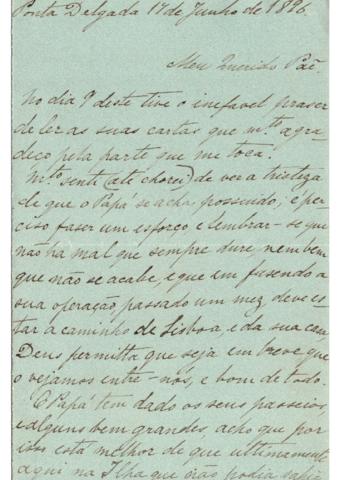 Ponta Delgada 17 de Junho de 1896.
Meu Querido Pae.
No dia 7 deste tive o inefavel praser
de ler as suas cartas que m.to agra-
deço pela parte que me toca.
M.to senti (até chorei) de ver a tristeza
de que o Papá se acha possuido; é per-
ciso faser um esforço e lembrar-se que
não ha mal que sempre dure nem bem
que não se acabe, e que em fasendo a
sua operação, passado um mez, deve es-
tar a caminho de Lisboa e da sua casa
Deus permitta que seja em breve que
o vejamos entre-nós, e bom de todo.
O Papá tem dado os seus passeios,
e alguns bem grandes, acho que por
isso está melhor de que ultimamente
aqui na Ilha que não podia